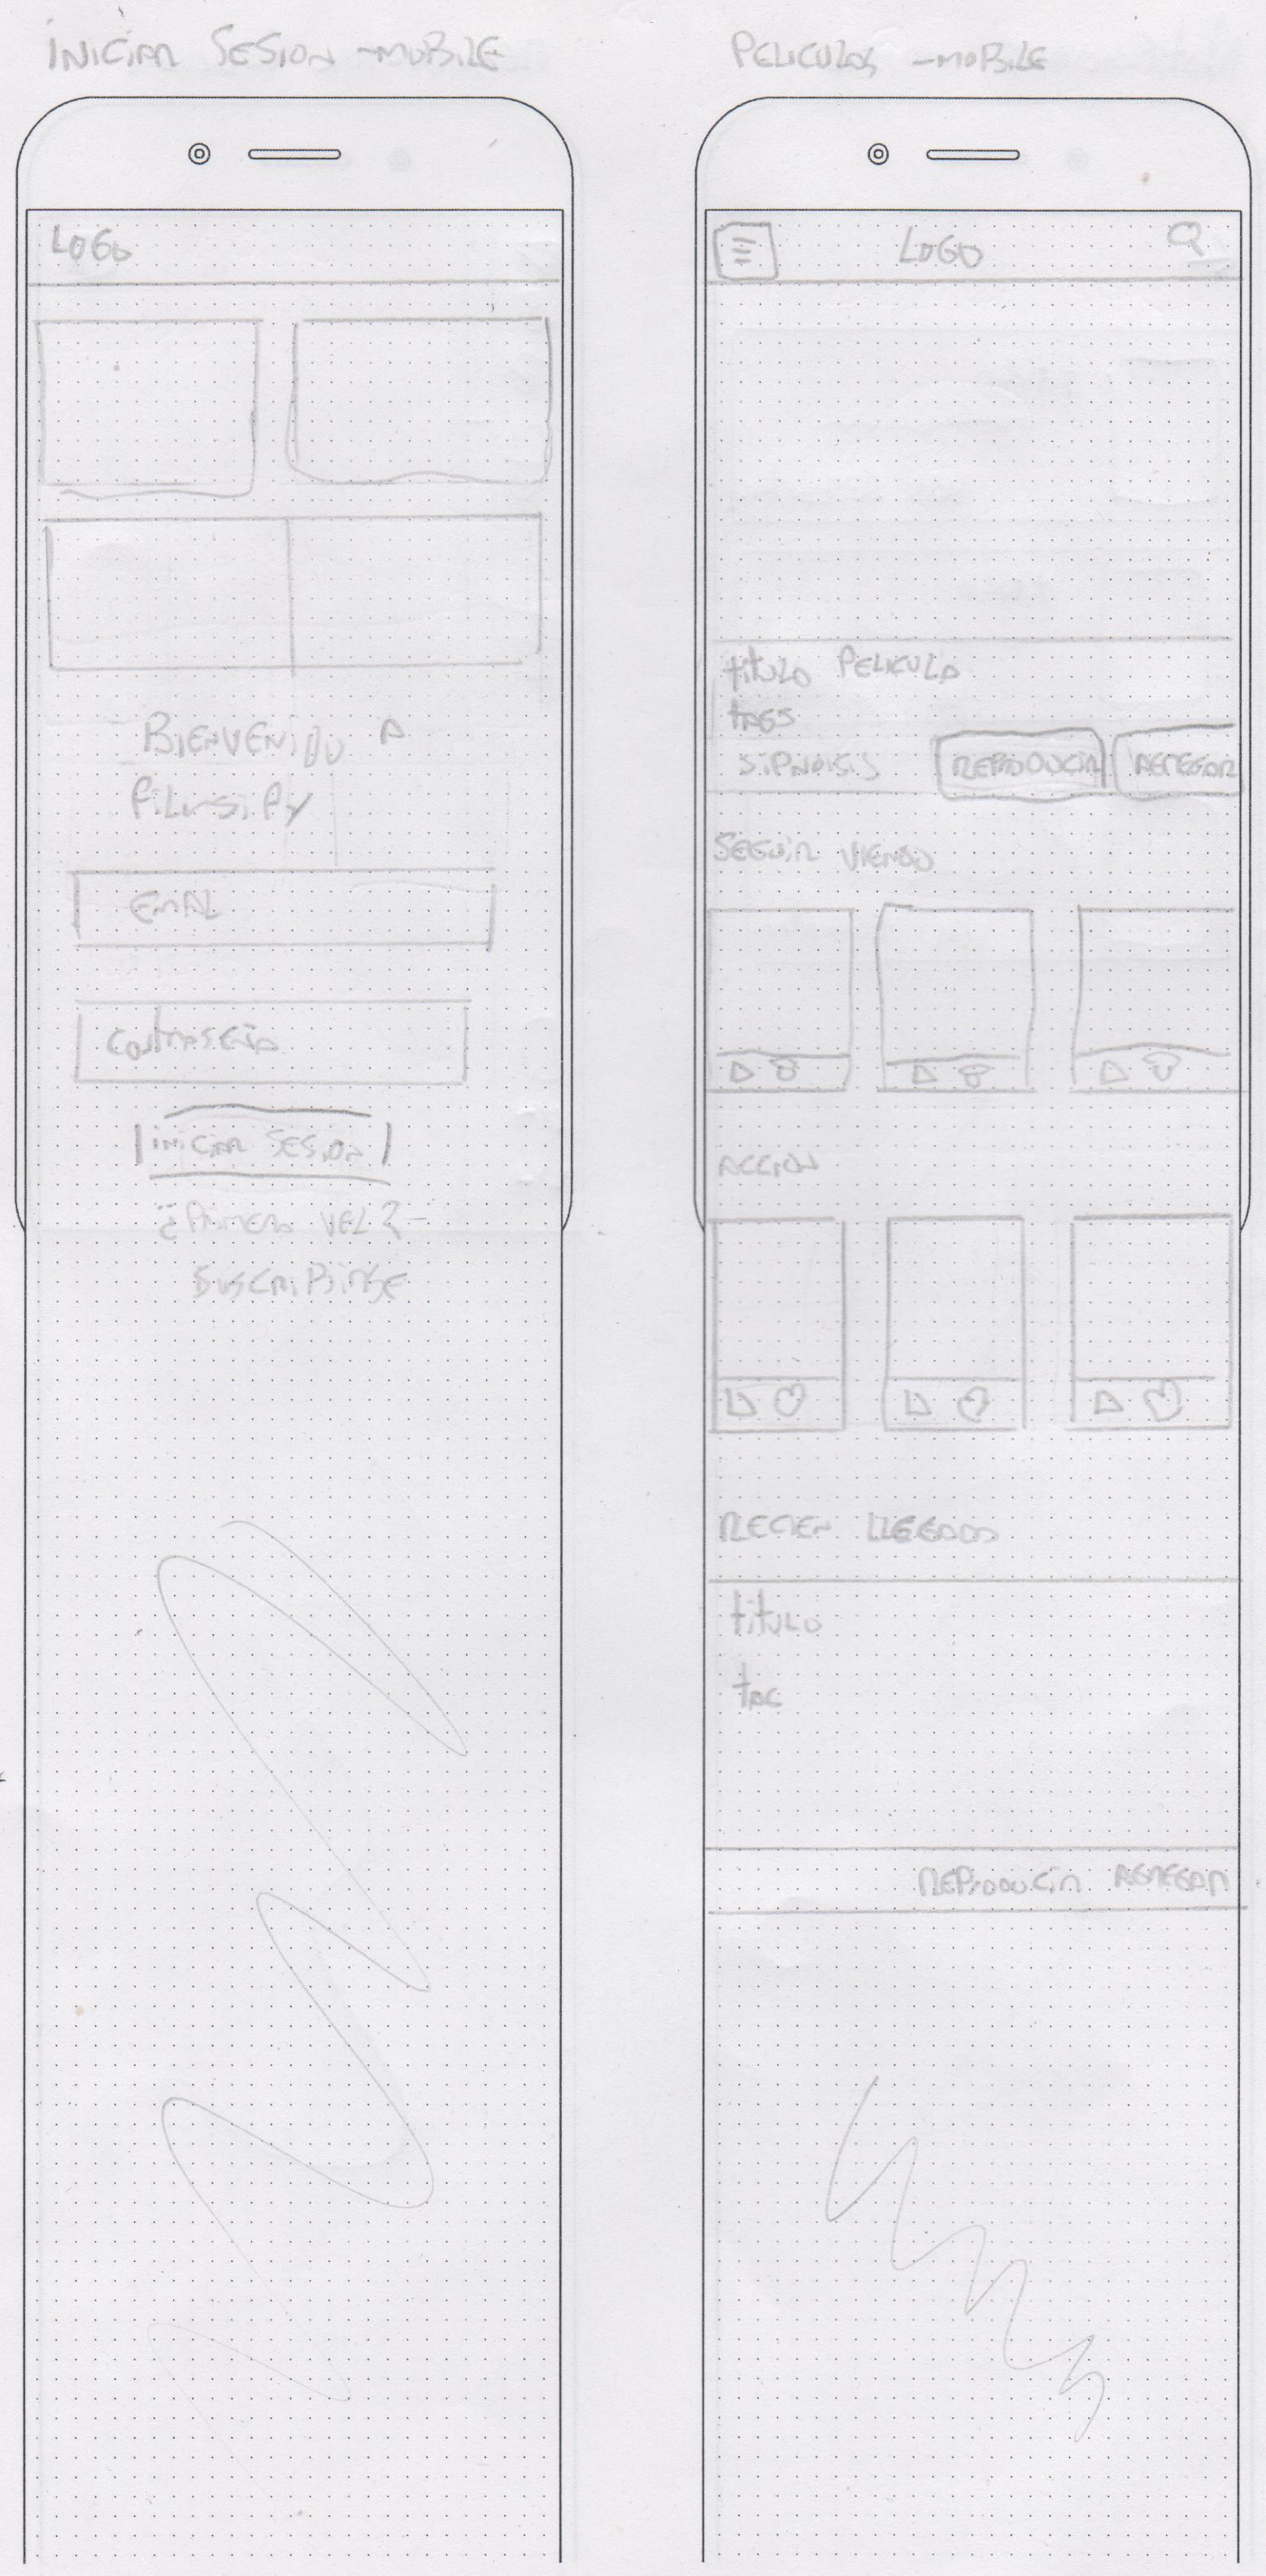 INICIAR SESION -MOBILE
LOGO
BIENVENIDO A
filmsify
EMAIL
CONTRASEÑA
INICIAR SESION
¿PRIMERA VEZ?-
SUSCRIBIRSE
PELICULAS -MOBILE
LOGO
titulo PELICULA
tAGS
SIPNOISIS REPRODUCIR AGREGAR
SEGUIR VIENDO
ACCION
RECIEN LLEGADO
titulo
tAG
REPRODUCIR AGREGAR